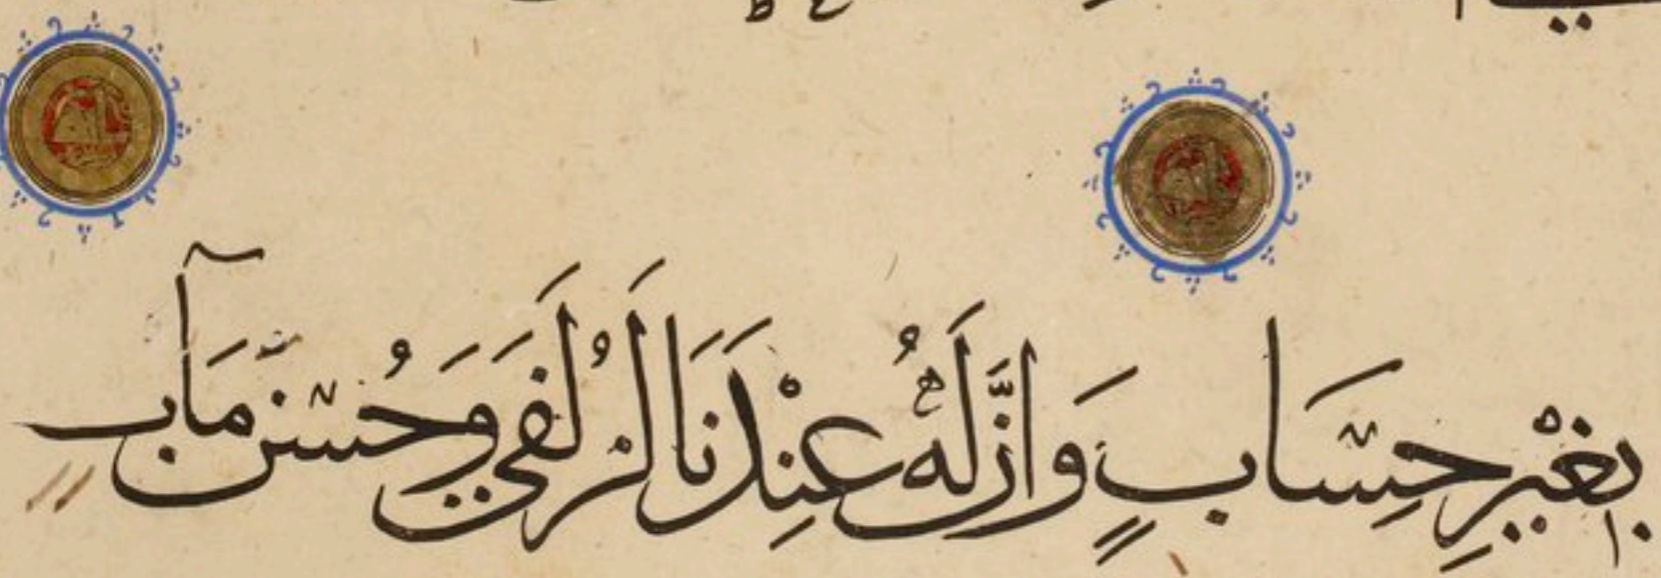 بِغَيْرِ حِسَابٍ وَاِنَّ لَهُ عِنْدَنَا لَزُلْفَي وَحُسْنَ مَآبٍ